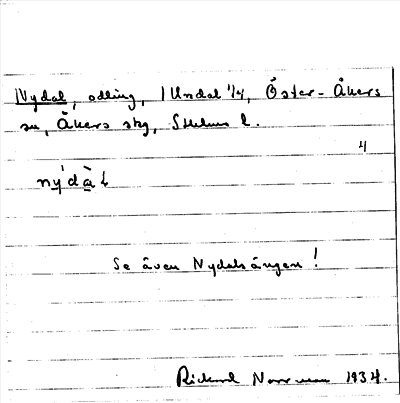 Nydal, odling, 1 Undal 1/4, Öster-Åkers
sn, Åkers skg, Sthlms l.
4
ný dà l
Se även Nydalsängen!
Rickard Norrman 1934.